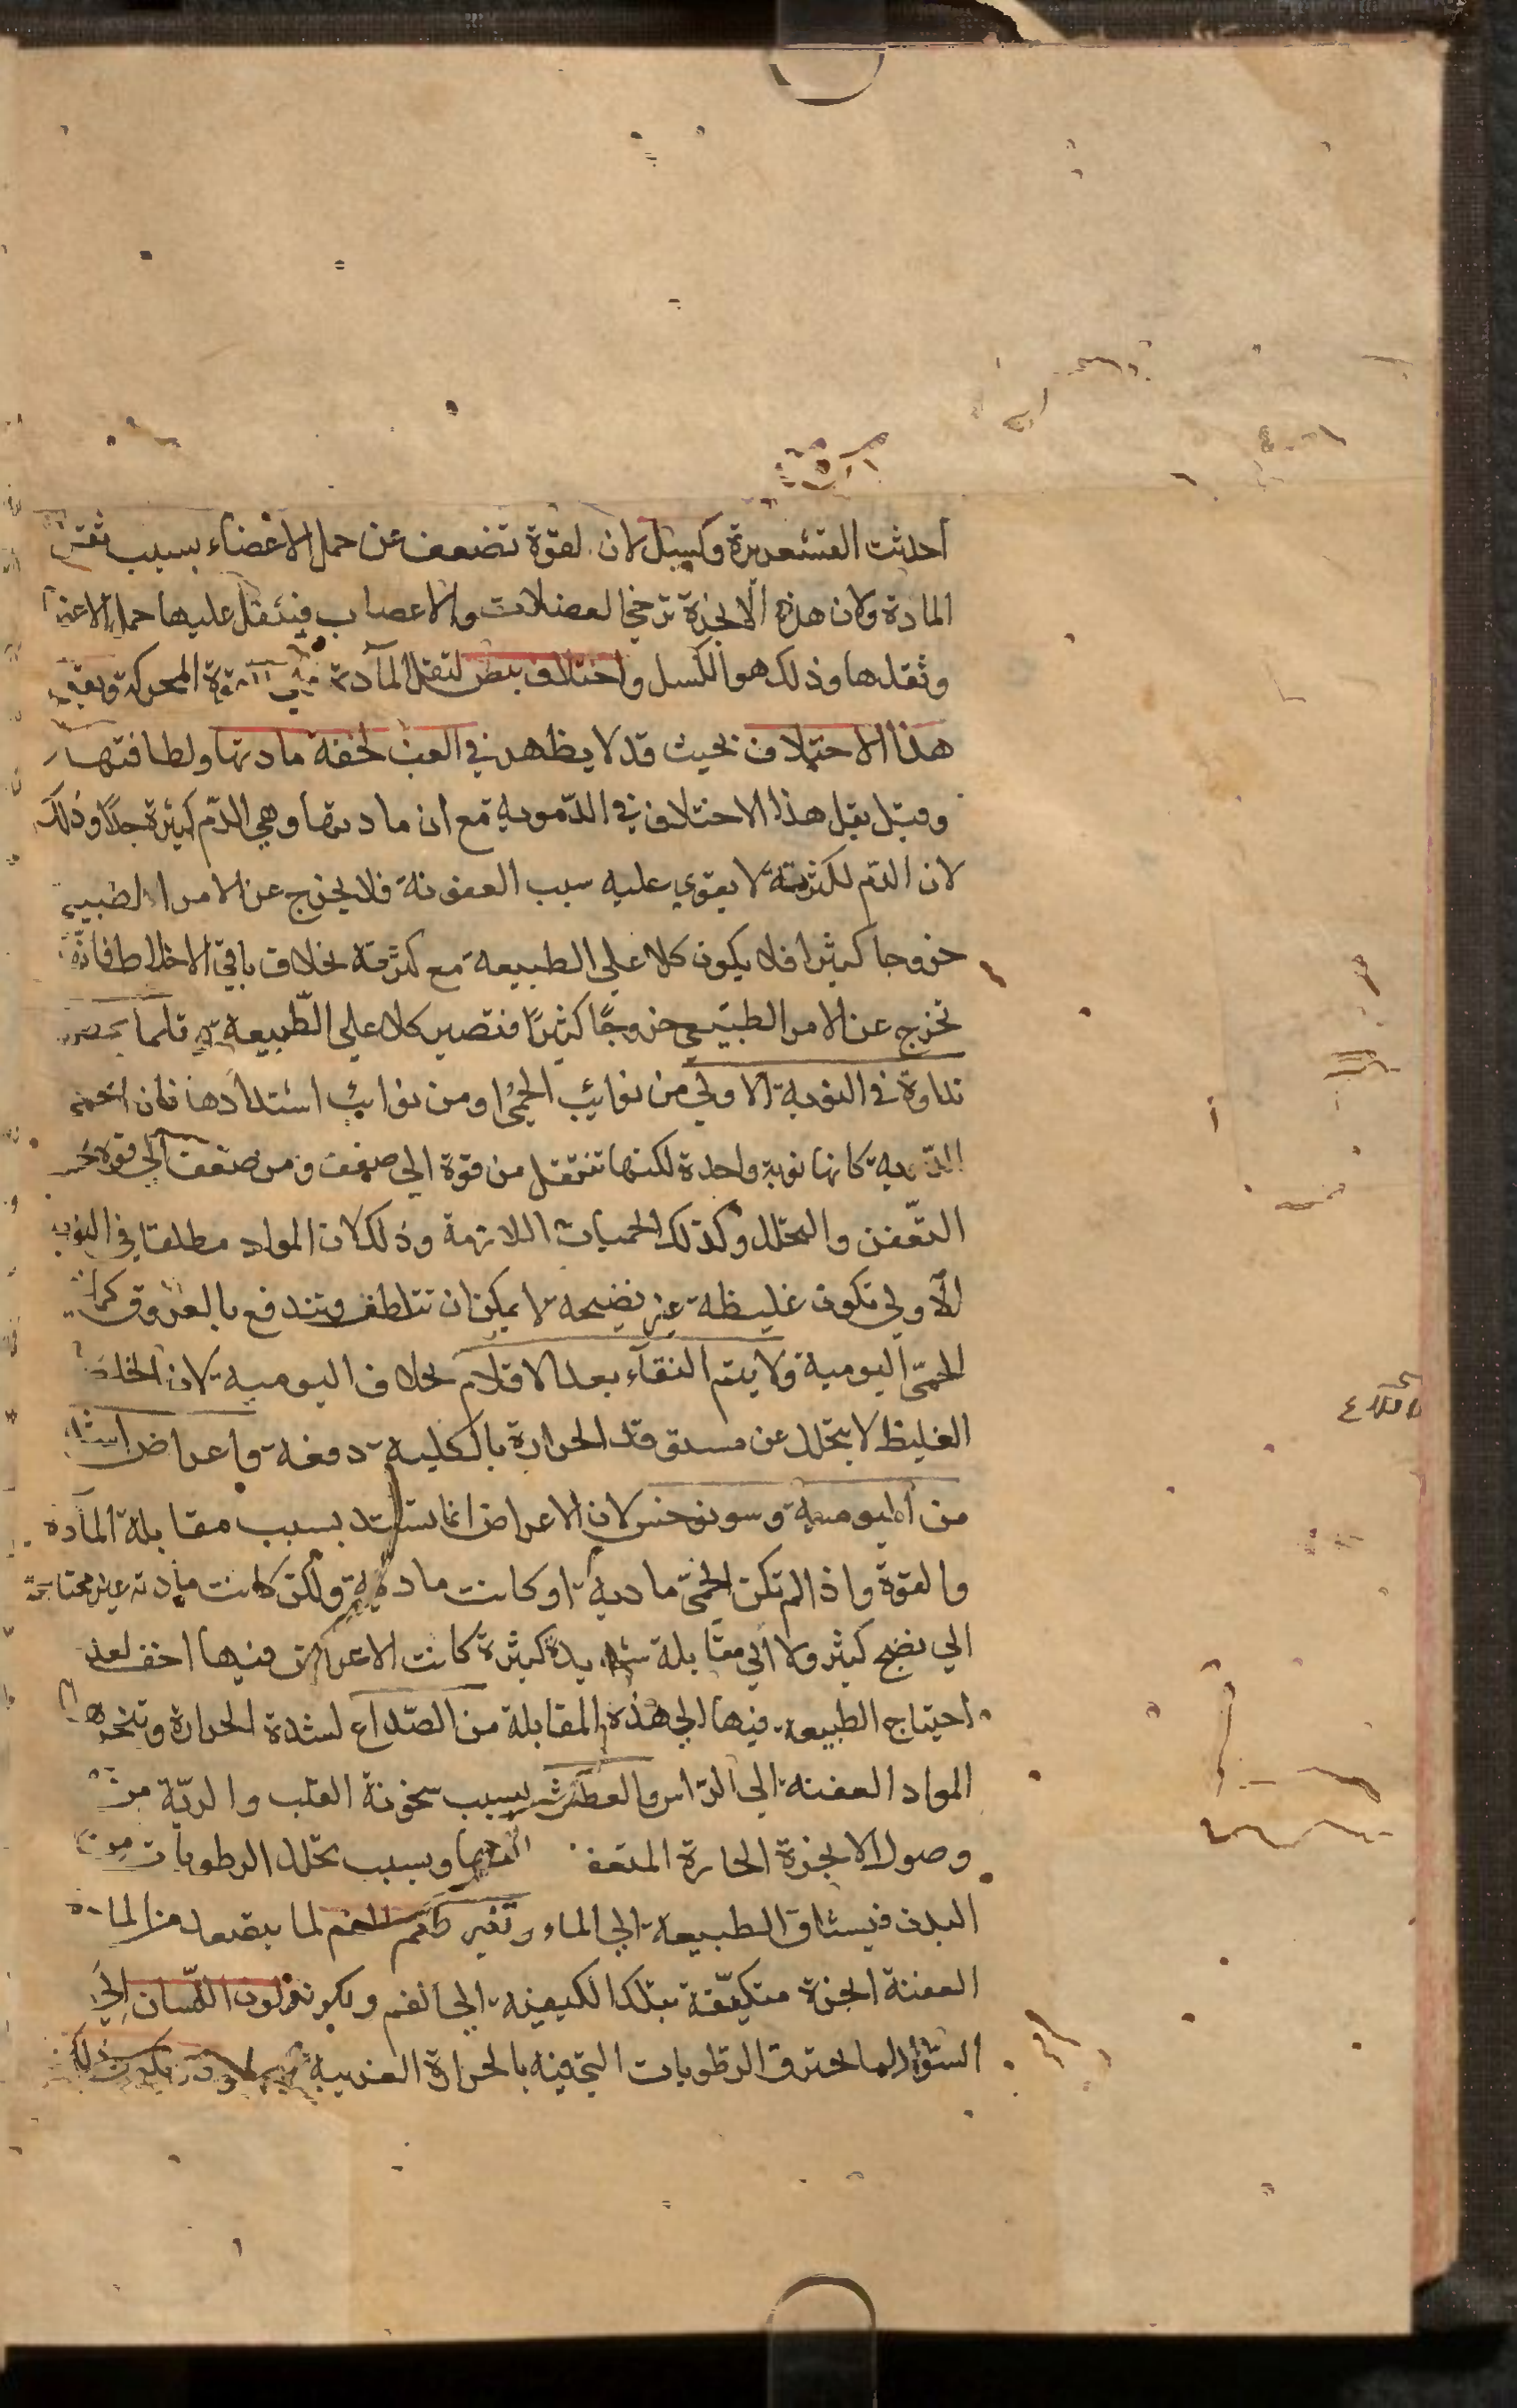 احدثت القشعريرة وكسل لان القوة تضعف عن حمل الاعضاء بسبب
المادة ولان هذه الابخرة ترخي العضلات والاعصاب فيثقل عليها حمل الاعضا
وثقلها وذلك هو الكسل واختلاف نبض لثقل المادة على القوة المحركة
هذا الاختلاف بحيث قد لا يظهر في الغب لخفة مادتها ولطافتها
وقيل يقل هذا الاختلاف في الدموية مع ان مادتها وهي الدم كثيرة جدا وذلك
لان الدم لكثرته لا يقوي عليه سبب العفونة فلا يخرج عن الامر الطبيعي
خروجا كثيرا فلا يكون كلا علي الطبيعة مع كثرته بخلاف باقي الاخلاط فانه
تخرج عن الامر الطبيعي خروجًا كثيرًا فتصير كلا علي الطّبيعة قلما
نداوة في النوبة الاولي من نوائب الحمي او من نوائب اشتدادها فان
كانها نوبة واحدة لكنها تنتقل من قوة الي ضعف ومن ضعف الي قوة
التعّفن والتحلل وكذلك الحميات اللازمة وذلك لان المواد مطلقا في النوبة
الاولي تكون غليظة غير نضيجة لا يمكن ان تتلطف وتندفع بالعروق
الحمّى اليومية ولا يتم النقآء بعد الاقلاع بخلاف اليومية لان الخلط
الغليظ لا يتحلل عن مستوقد الحرارة بالكلية دفعة واعراض اشد
من اليومية وسونوخس لان الاعراض انما تشتد بسبب مقابلة المآدة
والقوة واذا لم تكن الحمّى مادية او كانت مادية ولكن كانت مادته غير محتاجة
الي نضج كثير ولا الي مقابلة شديدة كثيرة كانت الاعراض فيها اخف لعدم
احتياج الطبيعة فيها الي هذه المقابلة من الصّداع لشدة الحرارة
المواد العفنة الي الرّاس والعطش بسبب سخونة القلب والريّة من
وصول الابخرة الحارة المتعفنة اليهما وبسبب تحلل الرطوبات من
البدن فيشتاق الطبيعة الي الماء وتغير طعم الفم لما يتصعد من المادة
العفنة ابخرة متكيّفة بتلك الكيفية الي الفم ويكون لون اللسان الي
السّواد لما تحترق الرطوبات التي فيه بالحرارة الغريبة